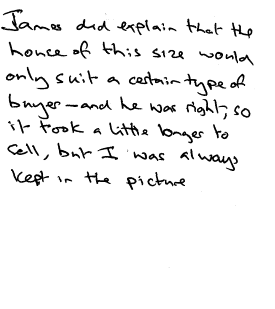 James did explain that the
house of this size would
only suit a certain type of
buyer - and he was right, so
it took a little longer to
sell, but I was always
kept in the picture